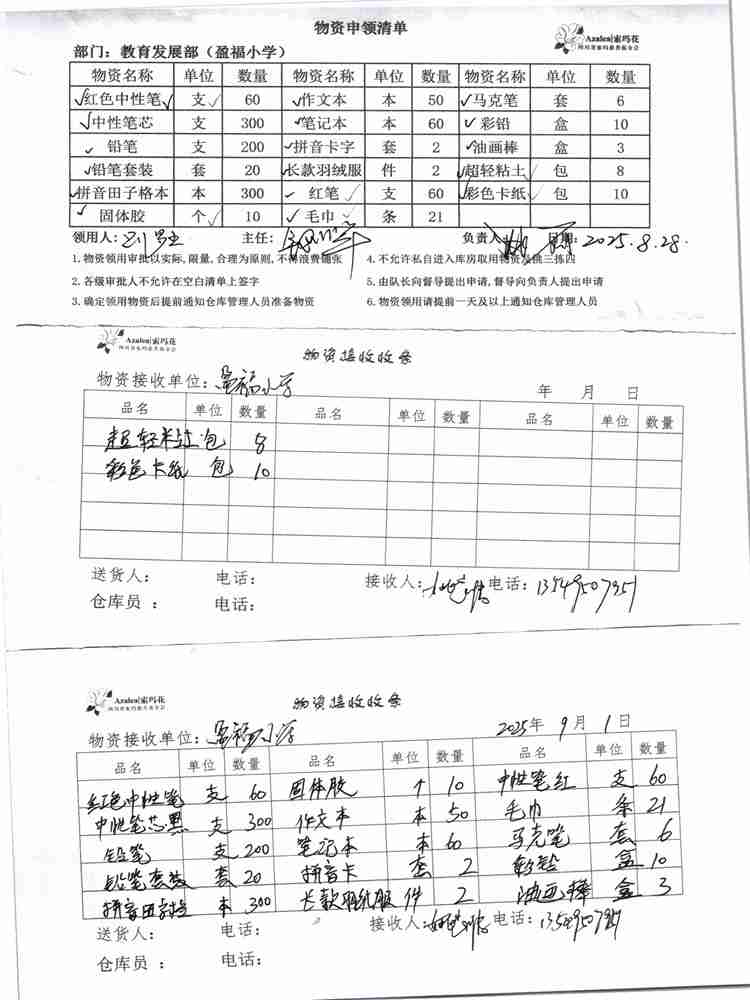 物资申领清单
Azalea|索玛花
四川省索玛慈善基金会
部门：教育发展部（盈福小学）
物资名称 单位 数量 物资名称 单位 数量 物资名称 单位 数量
√红色中性笔√ 支√ 60 √作文本 本 50 √马克笔 套 6
√中性笔芯 支 300 √笔记本 本 60 √彩铅 盒 10
√铅笔 支 200 √拼音卡字 套 2 √油画棒 盒 3
√铅笔套装 套 20 长款羽绒服 件 2 √超轻粘土√ 包 8
√拼音田子格本 本 300 √红笔√ 支 60 √彩色卡纸√ 包 10
√固体胶 个√ 10 √毛巾√ 条 21
领用人： 主任： 负责人 日期：2025.8.28.
1.物资领用审批以实际,限量,合理为原则,不得浪费铺张 4.不允许私自进入库房取用物资及挑三拣四
2.各级审批人不允许在空白清单上签字 5.由队长向督导提出申请,督导向负责人提出申请
3.确定领用物资后提前通知仓库管理人员准备物资 6.物资领用请提前一天及以上通知仓库管理人员
Azalea|索玛花
四川省索玛慈善基金会
物资接收收条
物资接收单位：盈福小学
年 月 日
品名 单位 数量 品名 单位 数量 品名 单位 数量
超轻粘土 包 8
彩色卡纸 包 10
送货人： 电话： 接收人： 电话：
仓库员 ： 电话：
Azalea|索玛花
四川省索玛慈善基金会
物资接收收条
物资接收单位：盈福小学 2025年 9月 1日
品名 单位 数量 品名 单位 数量 品名 单位 数量
红色中性笔 支 60 固体胶 个 10 中性笔红 支 60
中性笔芯黑 支 300 作文本 本 50 毛巾 条 21
铅笔 支 200 笔记本 本 60 马克笔 套 6
铅笔套装 套 20 拼音卡 套 2 彩铅 盒 10
拼音田字格 本 300 长款羽绒服 件 2 油画棒 盒 3
送货人： 电话： 接收人： 电话：
仓库员 ： 电话：